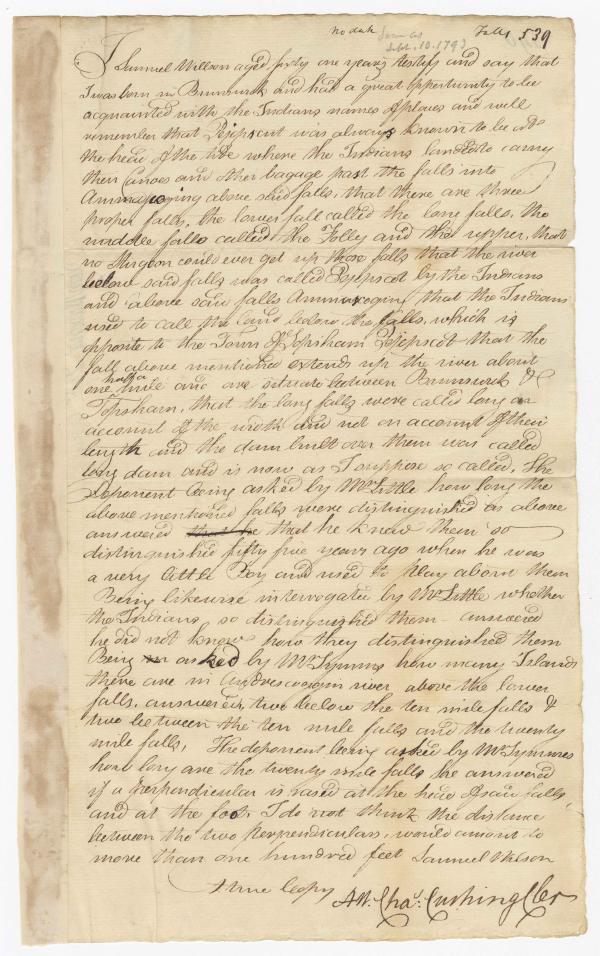 no date
Sept. 10. 1793
Falls 539
I Samuel Willson aged forty one years testify and say that
I was born in Brunswick and had a great opportunity to be
acquainted with the Indians names of places and well
remember that Pejepscut was always known to be at
the head of the tide where the Indians landed to carry
their Canoes and other bagage past the falls into
above said falls, that there are three
proper falls, the lower fall called the long falls, the
middle falls called the Folly and the upper, that
no Sturgeon could ever get up those falls that the river
below said falls was called Pejepscot by the Indians
and above said falls Ammoscogin, that the Indians
used to call the land below the falls, which is
opposite to the Town of Topsham Pejepscot that the
falls above mentioned extends up the river about
half a
one mile and are situate between Brunswick &
Topsham, that the long falls were called long on
account of the width and not on account of their
length and the dam built over them was called
long dam and is now as I suppose so called. The
Deponent being asked by Mr. Little how long the
above mentioned falls were distinguished as above
answered that he that he knew them so
distinguished fifty five years ago when he was
a very little Boy and used to play about them
Being likewise interrogated by Mr. Little whether
the Indians so distinguished them - answered
he did not know how they distinguished them
Being asked by Mr. Symmes how many Islands
there are in Androscoggin river above the lower
falls, answered, two below the ten mile falls &
two between the ten mile falls and the twenty
mile falls, The deponent being asked by Mr. Symmes
how long are the twenty mile falls he answered
if a Perpendicular is rased at the head of said falls
and at the foot, I do not think the distance
between the two Perpendiculars, would amount to
more than one hundred feet Samuel Wilson
A true Copy
Att. Chas. Cushing Cler